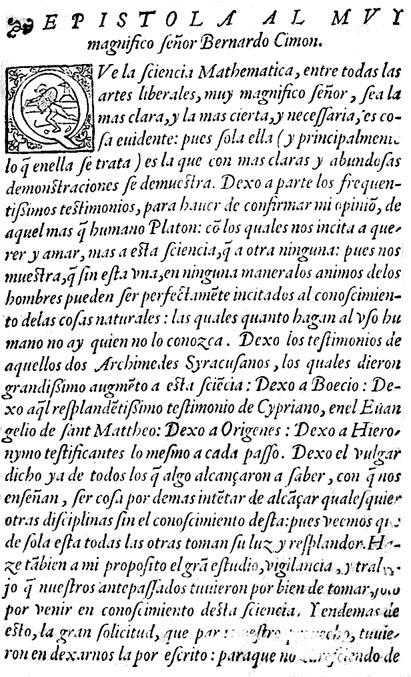 EPISTOLA AL MVY
magnifico ſeñor Bernardo Cimon.
QVe la ſciencia Mathematica, entre todas las
artes liberales, muy magnifico ſeñor, ſea la
mas clara, y la mas cierta, y neceſſaria, es co-
ſa euidente: pues ſola ella (y principalmente
lo q̃ enella ſe trata) es la que con mas claras y abundoſas
demonstraciones ſe demuestra. Dexo a parte los frequen-
tiſsimos testimonios, para hauer de confirmar mi opiniõ, de
aquel mas q̃ humano Platon: cõ los quales nos incita a que-
rer y amar, mas a esta ſciencia, q̃ a otra ninguna: pues nos
muestra, q̃ ſin esta vna, en ninguna manera los animos delos
hombres pueden ſer perfectamẽte incitados al conoſcimien-
to delas coſas naturales: las quales quanto hagan al vſo hu
mano no ay quien no lo conozca. Dexo los testimonios de
aquellos dos Archimedes Syracuſanos, los quales dieron
grandiſsimo augmẽto a esta ſciẽcia: Dexo a Boecio: De-
xo aq̃l reſplandẽtiſsimo testimonio de Cypriano, enel Euan
gelio de ſant Mattheo: Dexo a Origenes: Dexo a Hiero-
nymo testificantes lo meſmo a cada paſſo. Dexo el vulgar
dicho ya de todos los q̃ algo alcançaron a ſaber, con q̃ nos
enſeñan, ſer coſa por demas intẽtar de alcãçar qualesquier
otras diſciplinas ſin el conoſcimiento desta: pues veemos que
de ſola esta todas las otras toman ſu luz y reſplandor. Ha-
ze tãbien a mi propoſito el grã estudio, vigilancia, y traba-
jo q̃ nuestros antepaſſados tuuieron por bien de tomar, ſolo
por venir en conoſcimiento desta ſciencia. Y endemas de
esto, la gran ſolicitud, que para nuestro prouecho, tuuie-
ron en dexarnos la por eſcrito: paraque no careſciendo de